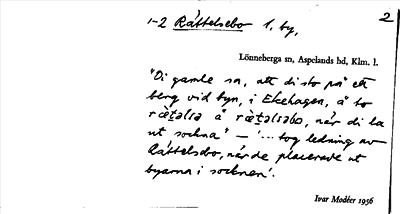 2
1-2 Råttelsebo 1, by,
Lönneberga sn, Aspelands hd, Klm. l.
"Di gamle sa, att di sto på ett
berg vid byn, i Ekehagen, å to
å når di la
ut sockna" – '... tog ledning av
Råttelsbo, når de placerade ut
byarna i socknen'.
Ivar Modéer 1936